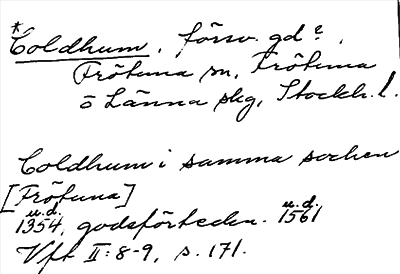 *Coldhum, försv. gd?,
Frötuna sn, Frötuna
o Länna skg, Stockh. l.
Coldhum i samma sochen
[Frötuna]
u.d. u.d.
1354, godsförteckn. 1561
Vft II:8-9, s. 171.